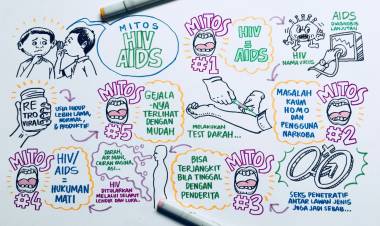 MITOS
HIV
AIDS
MITOS
#1
HIV
=
AIDS
HIV
NAMA VIRUS
AIDS
DIAGNOSIS
LANJUTAN
MASALAH
KAUM
HOMO
DAN
PENGGUNA
NARKOBA
MITOS
#2
SEKS PENETRATIF
ANTAR LAWAN JENIS
JUGA JADI SEBAB...
MITOS
#3
BISA
TERJANGKIT
BILA TINGGAL
DENGAN
PENDERITA
DARAH,
AIR MANI,
CAIRAN VAGINA,
ASI...
HIV
DITULARKAN
MELALUI SELAPUT
LENDIR DAN LUKA..
MITOS
#4
HIV/
AIDS
= HUKUMAN
MATI
RE
TRO
VIRAL
USIA HIDUP
LEBIH LAMA,
NORMAL,
& PRODUKTIF
MITOS
#5
GEJALA-
NYA
TERLIHAT
DENGAN
MUDAH
MELAKUKAN
TEST DARAH...